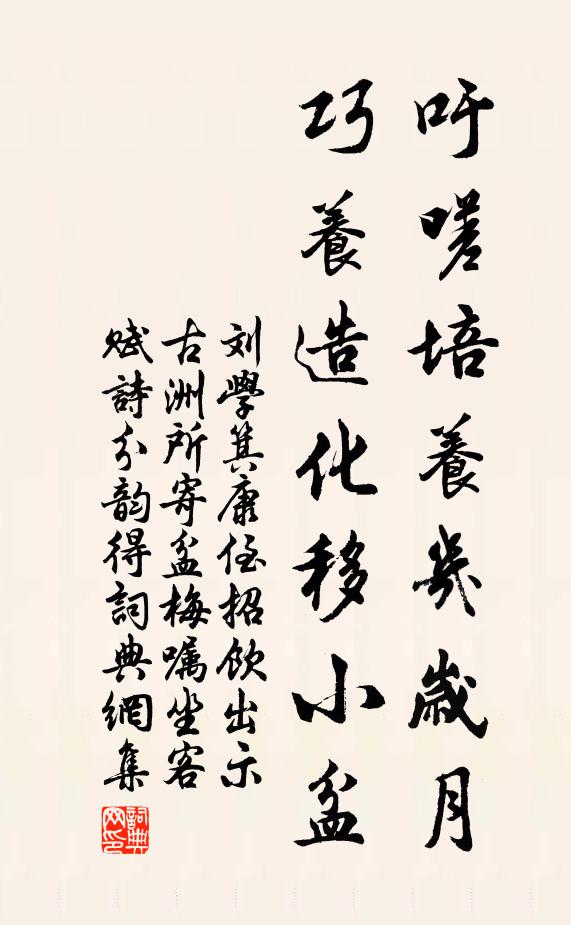 吁嗟培養幾歲月
巧養造化移小盆
刘學箕康侄招飲出示
古洲所寄盆梅嘱坐客
賦詩分韵得詞典網集
詞典网印